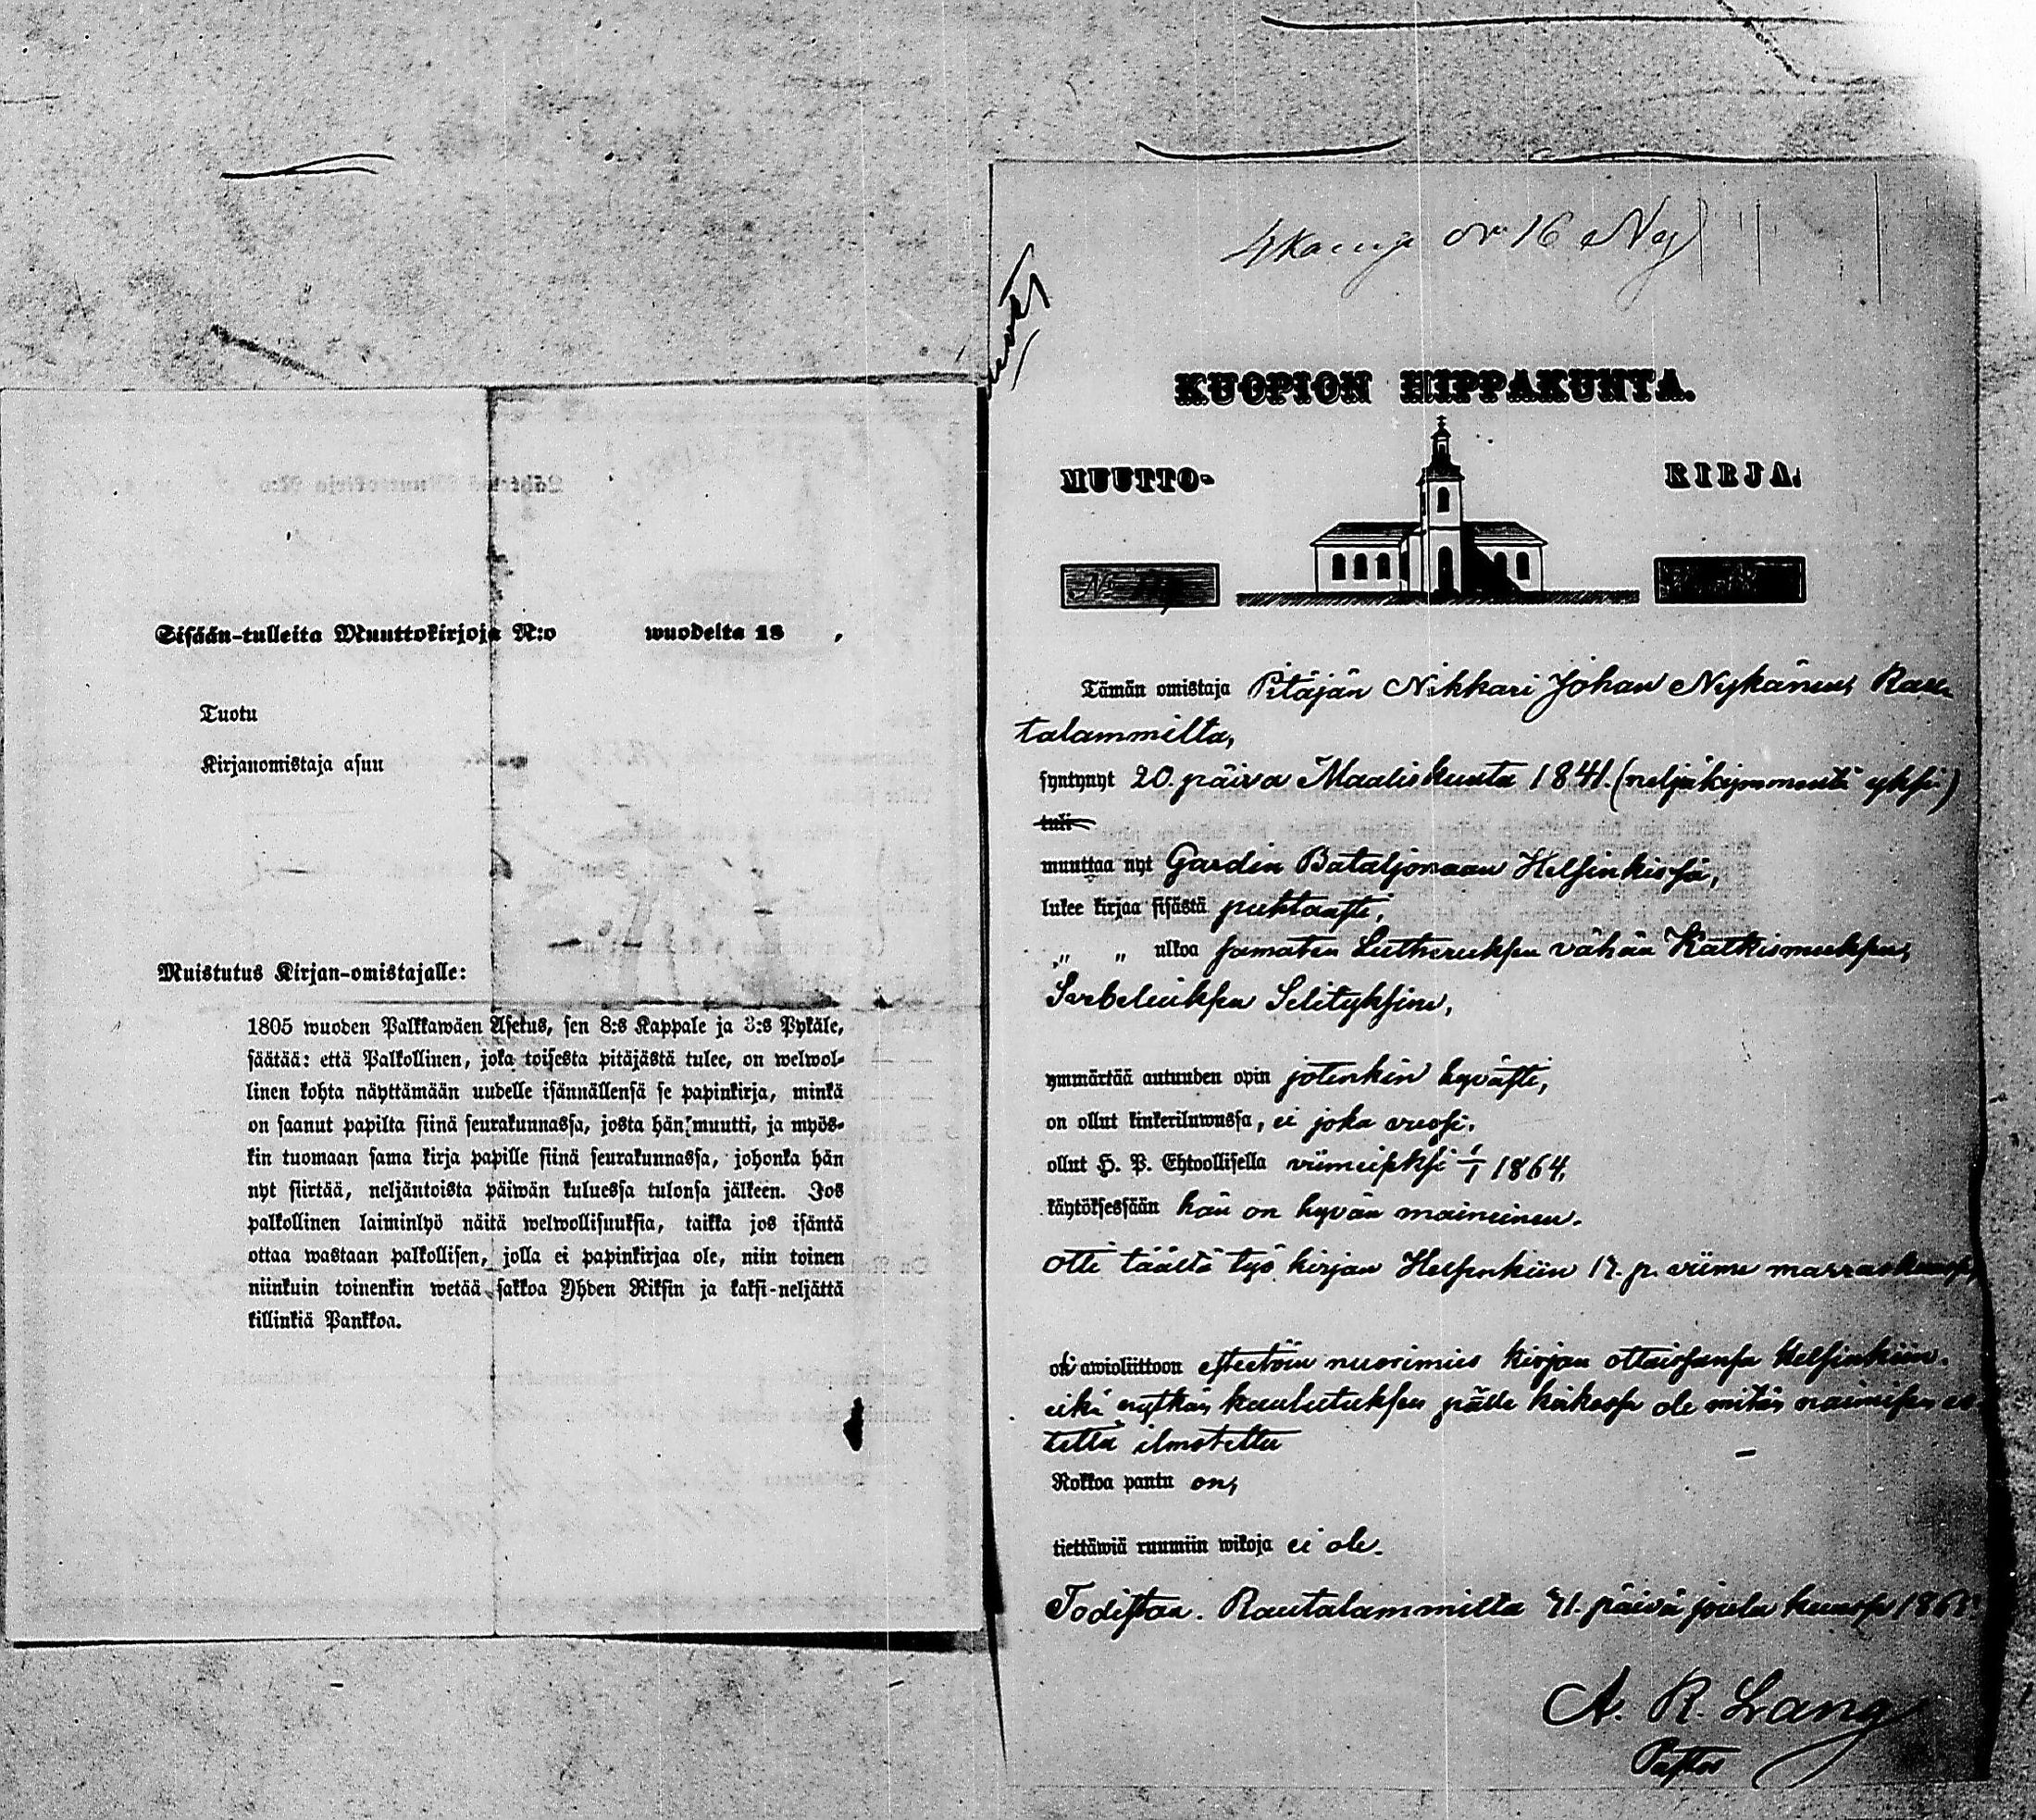 Sisään-tulleita Muuttokirjoja N:o wuodelta 18 ,
Tuotu
Kirjanomistaja asuu
Muistutus Kirjan-omistajalle:
1805 wuoden Palkkawäen Asetus, sen 8:s Kappale ja 3:s Pykäle,
säätää: että Palkollinen, joka toisesta pitäjästä tulee, on welwol-
linen kohta näyttämään uudelle isännällensä se papinkirja, minkä
on saanut papilta siinä seurakunnassa, josta hän muutti, ja myös-
kin tuomaan sama kirja papille siinä seurakunnassa, johonka hän
nyt siirtää, neljäntoista päiwän kuluessa tulonsa jälkeen. Jos
palkollinen laiminlyö näitä welwollisuuksia, taikka jos isäntä
ottaa wastaan palkollisen, jolla ei papinkirjaa ole, niin toinen
niinkuin toinenkin wetää sakkoa Yhden Riksin ja kaksi-neljättä
killinkiä Pankkoa.
16
KUOPION HIPPAKUNTA.
MUUTTO- KIRJA.
N:
Tämän omistaja Pitäjän Nikkari Johan Nykänen, Rau-
talammilta,
syntynyt 20. päivä Maaliskuuta 1841. (neljäkymmentä yksi)
tuli
muuttaa nyt Gardin Bataljonaan Helsinkissä,
lukee kirjaa sisästä puhtaasti,
„ „ ulkoa samaten Lutheruksen vähän Katkismuksen,
Svebeliuksen Selityksine,
ymmärtää autuuden opin jotenkin hyvästi,
on ollut kinkeriluwussa, ei joka vuosi.
ollut H. P. Ehtoollisella viimeiseksi 1/1 1864.
käytöksessään hän on hyvän maineinen.
otti täältä työ kirjan Helsinkiin 17. p. viime marraskuussa
oli awioliittoon esteetöin nuorimies kirjan ottaissansa Helsinkiin.
eikä nytkän kuulutuksen päälle ole mitän naimisen es-
tettä ilmotettu
Rokkoa pantu on,
tiettäwiä ruumiin wikoja ei ole.
Todistan. Rautalammilta 31. päivä joulu kuussa
A. R. Lang
Pastor